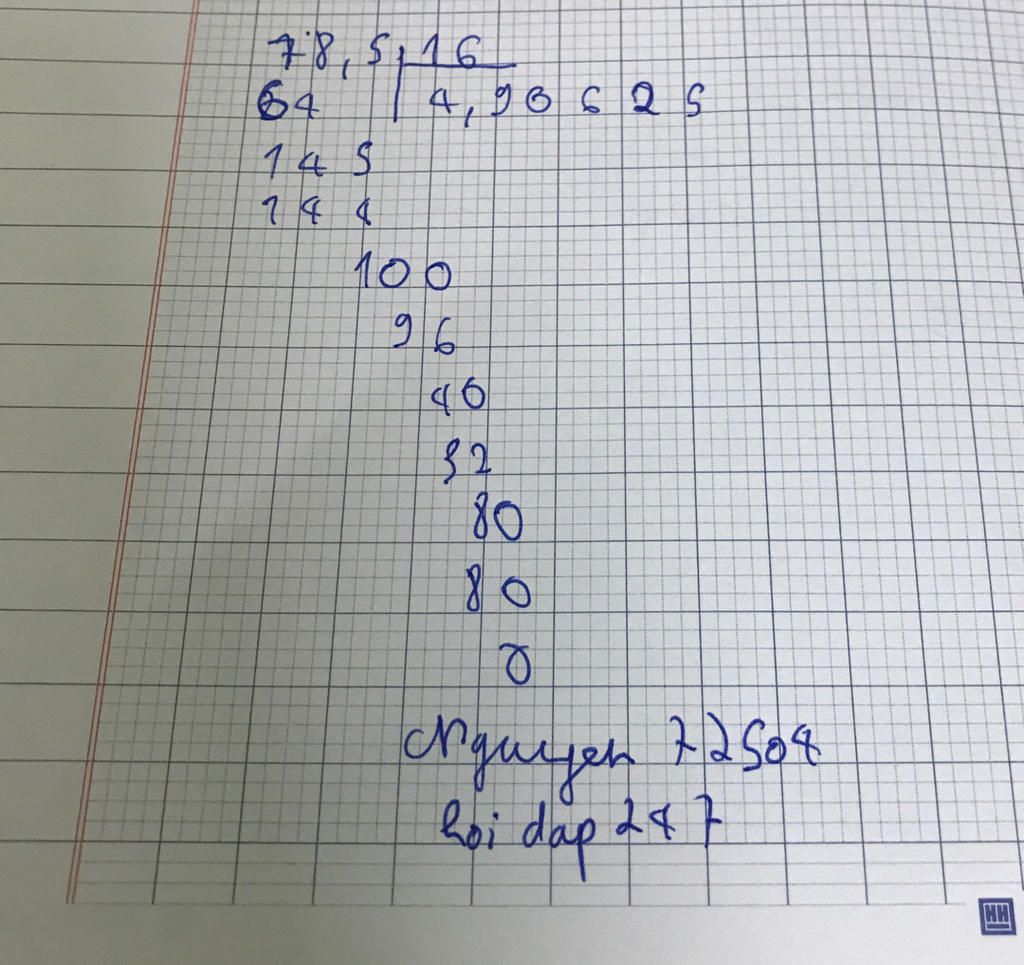 78,5 16
64 4,90625
145
144
100
96
40
32
80
80
0
Nguyen 72504
hoi dap 247
HH